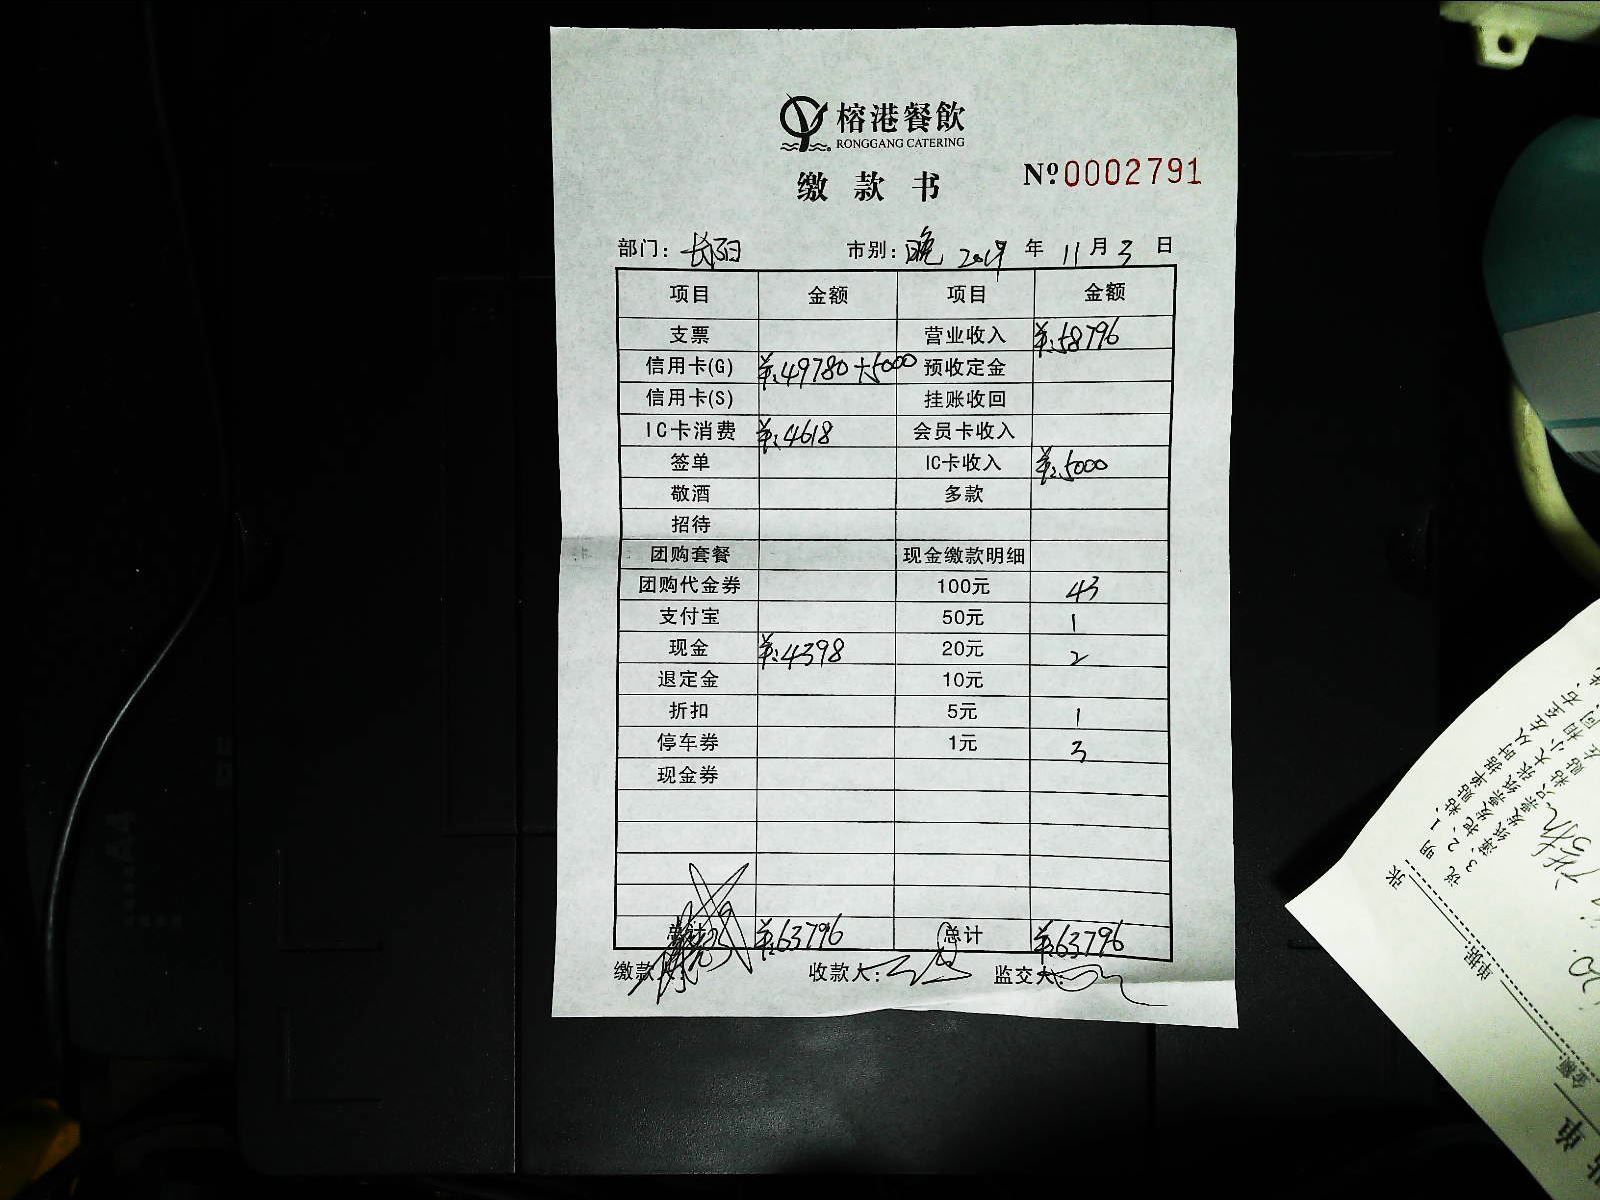 榕港餐飲
RONGGANG CATERING
缴款书
№0002791
部门：长阳 市别：晚 2019 年 11 月 3 日
项目 金额 项目 金额
支票 营业收入 ¥：58796
信用卡(G) ¥：49780+5000 预收定金
信用卡(S) 挂账收回
IC卡消费 ¥：4618 会员卡收入
签单 IC卡收入 ¥：5000
敬酒 多款
招待
团购套餐 现金缴款明细
团购代金券 100元 43
支付宝 50元 1
现金 ¥：4398 20元 2
退定金 10元
折扣 5元 1
停车券 1元 3
现金券
总计 ¥：63796 总计 ¥：63796
缴款人： 收款人： 监交人：
张
单据
金额：
说明